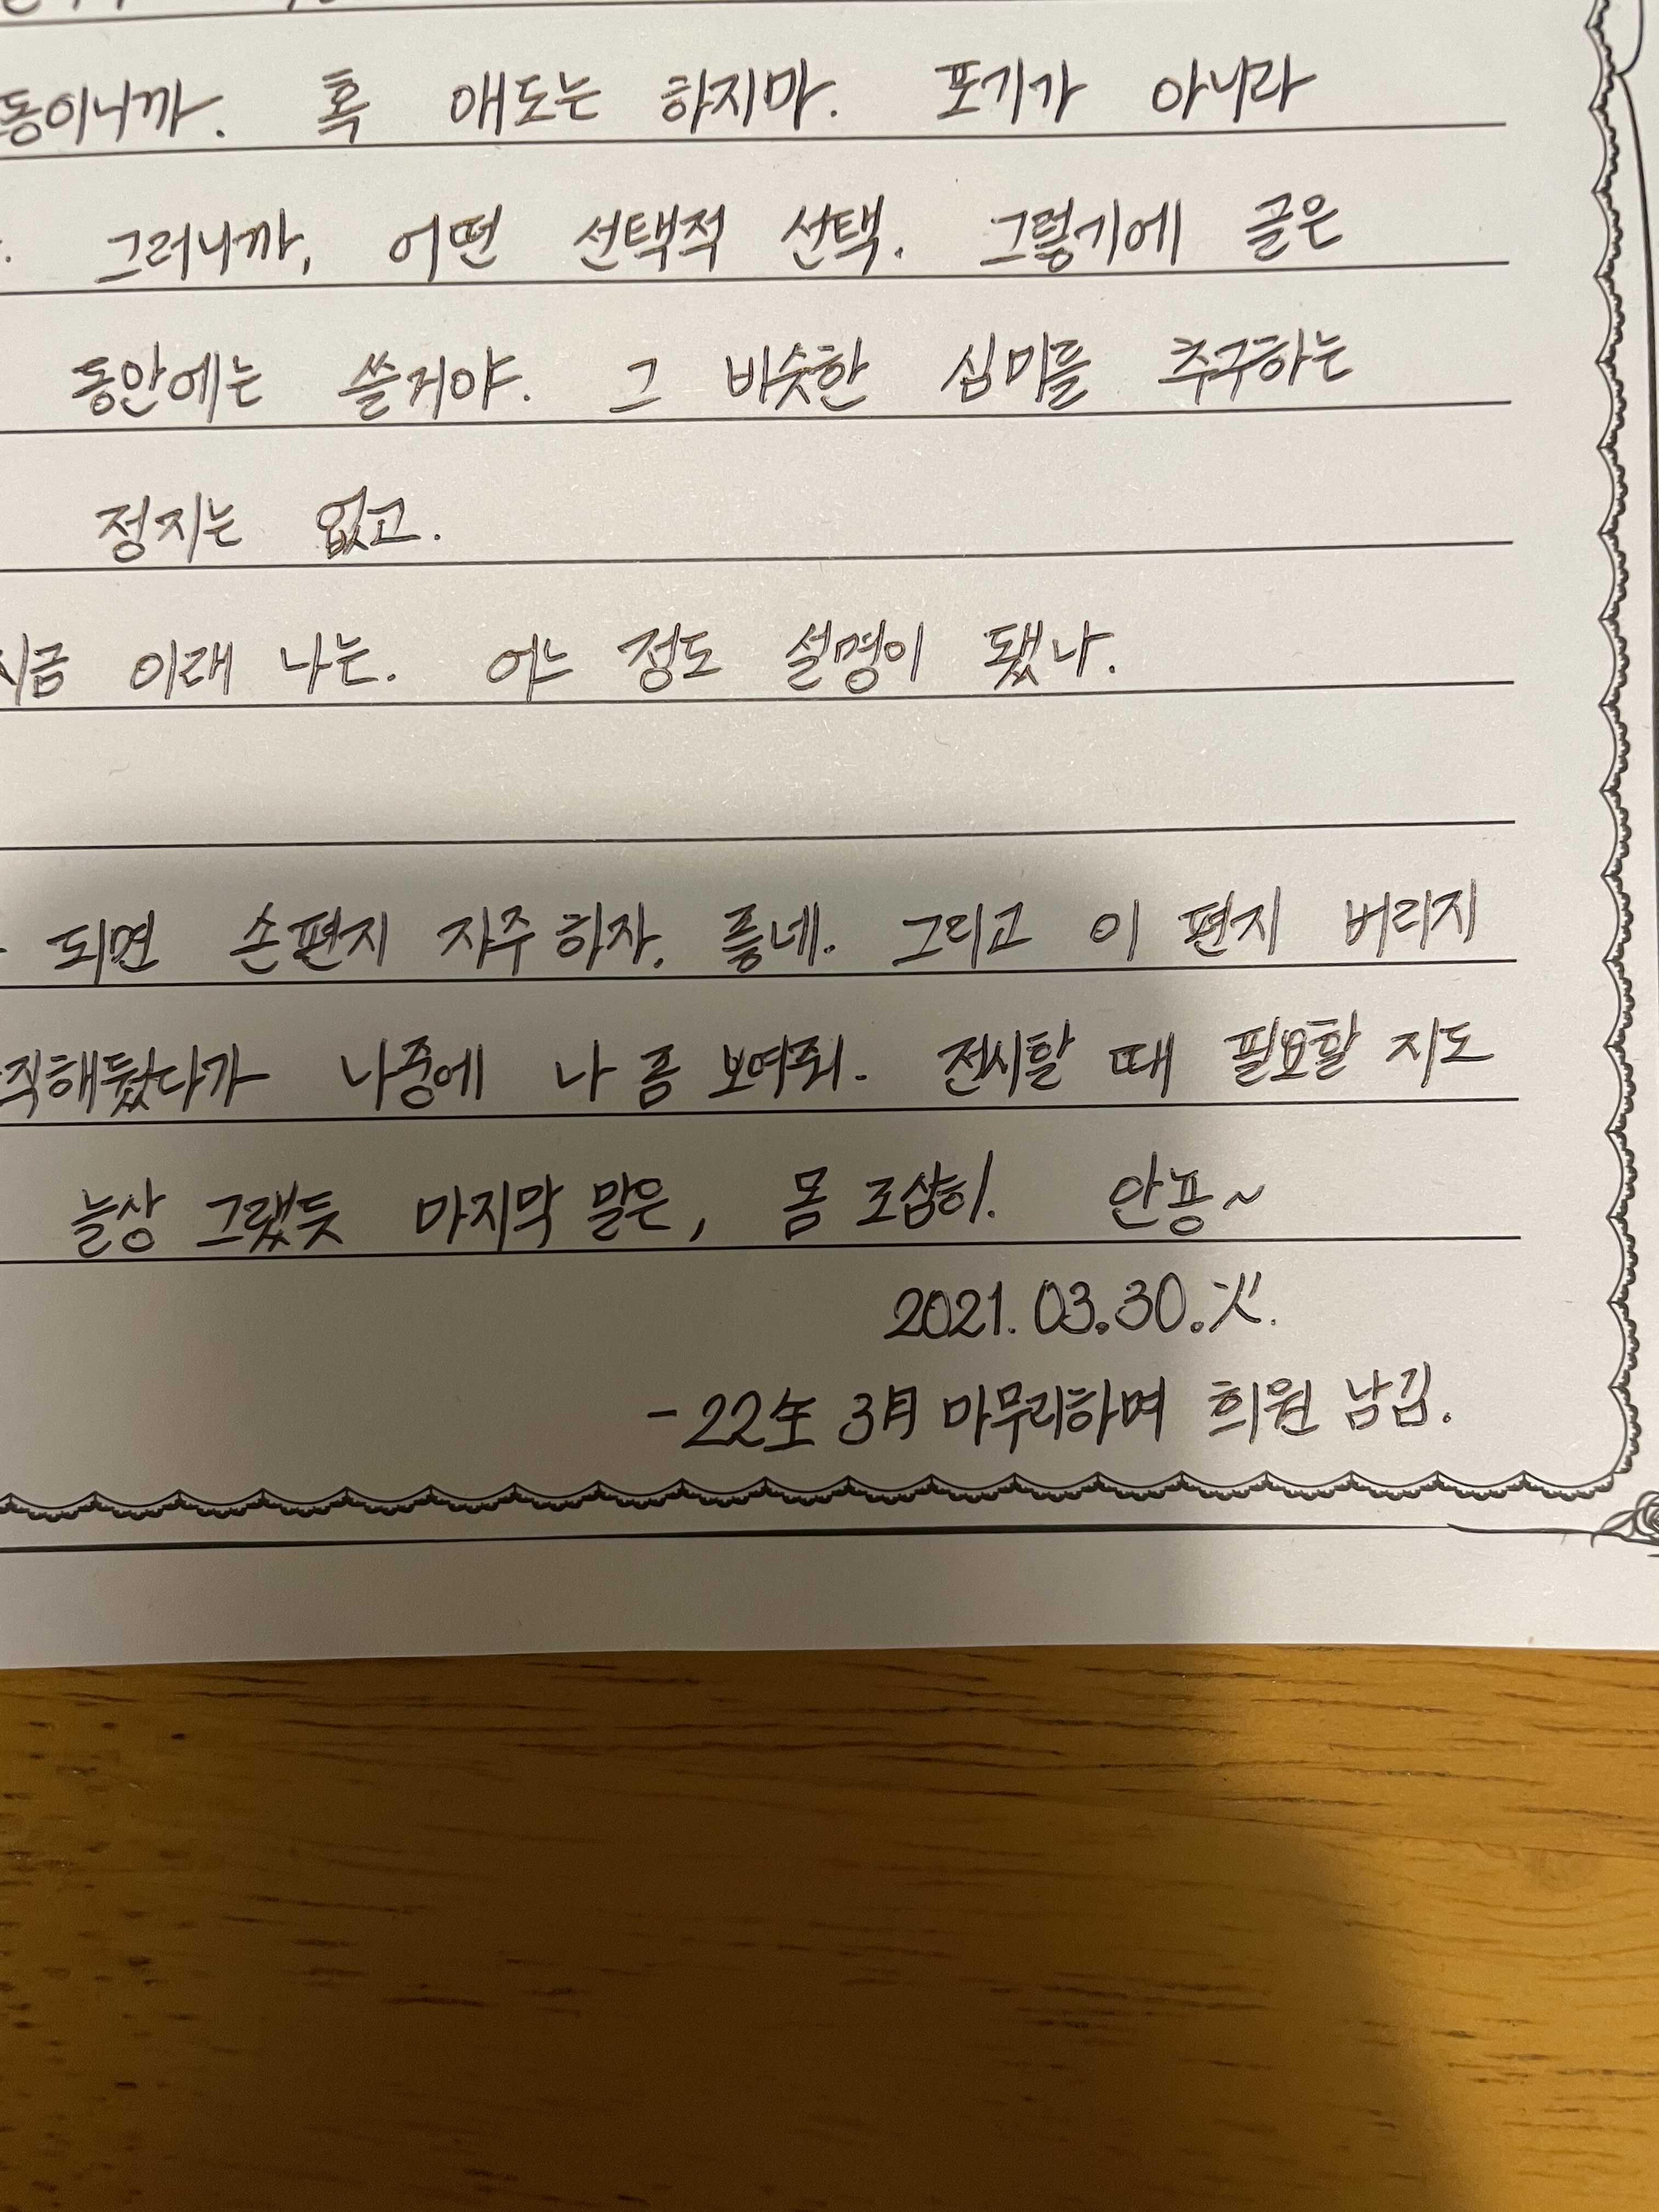 동이니까. 혹 애도는 하지마. 포기가 아니라
. 그러니까, 어떤 선택적 선택. 그렇기에 글은
동안에는 쓸거야. 그 비슷한 심미를 추구하는
정지는 없고.
지금 이래 나는. 어느 정도 설명이 됐나.
되면 손편지 자주 하자. 좋네. 그리고 이 편지 버리지
직해뒀다가 나중에 나 좀 보여줘. 전시할 때 필요할 지도
늘상 그랬듯 마지막 말은, 몸 조심히. 안뇽~
2021.03.30.火.
- 22生 3月 마무리하며 희원 남김.